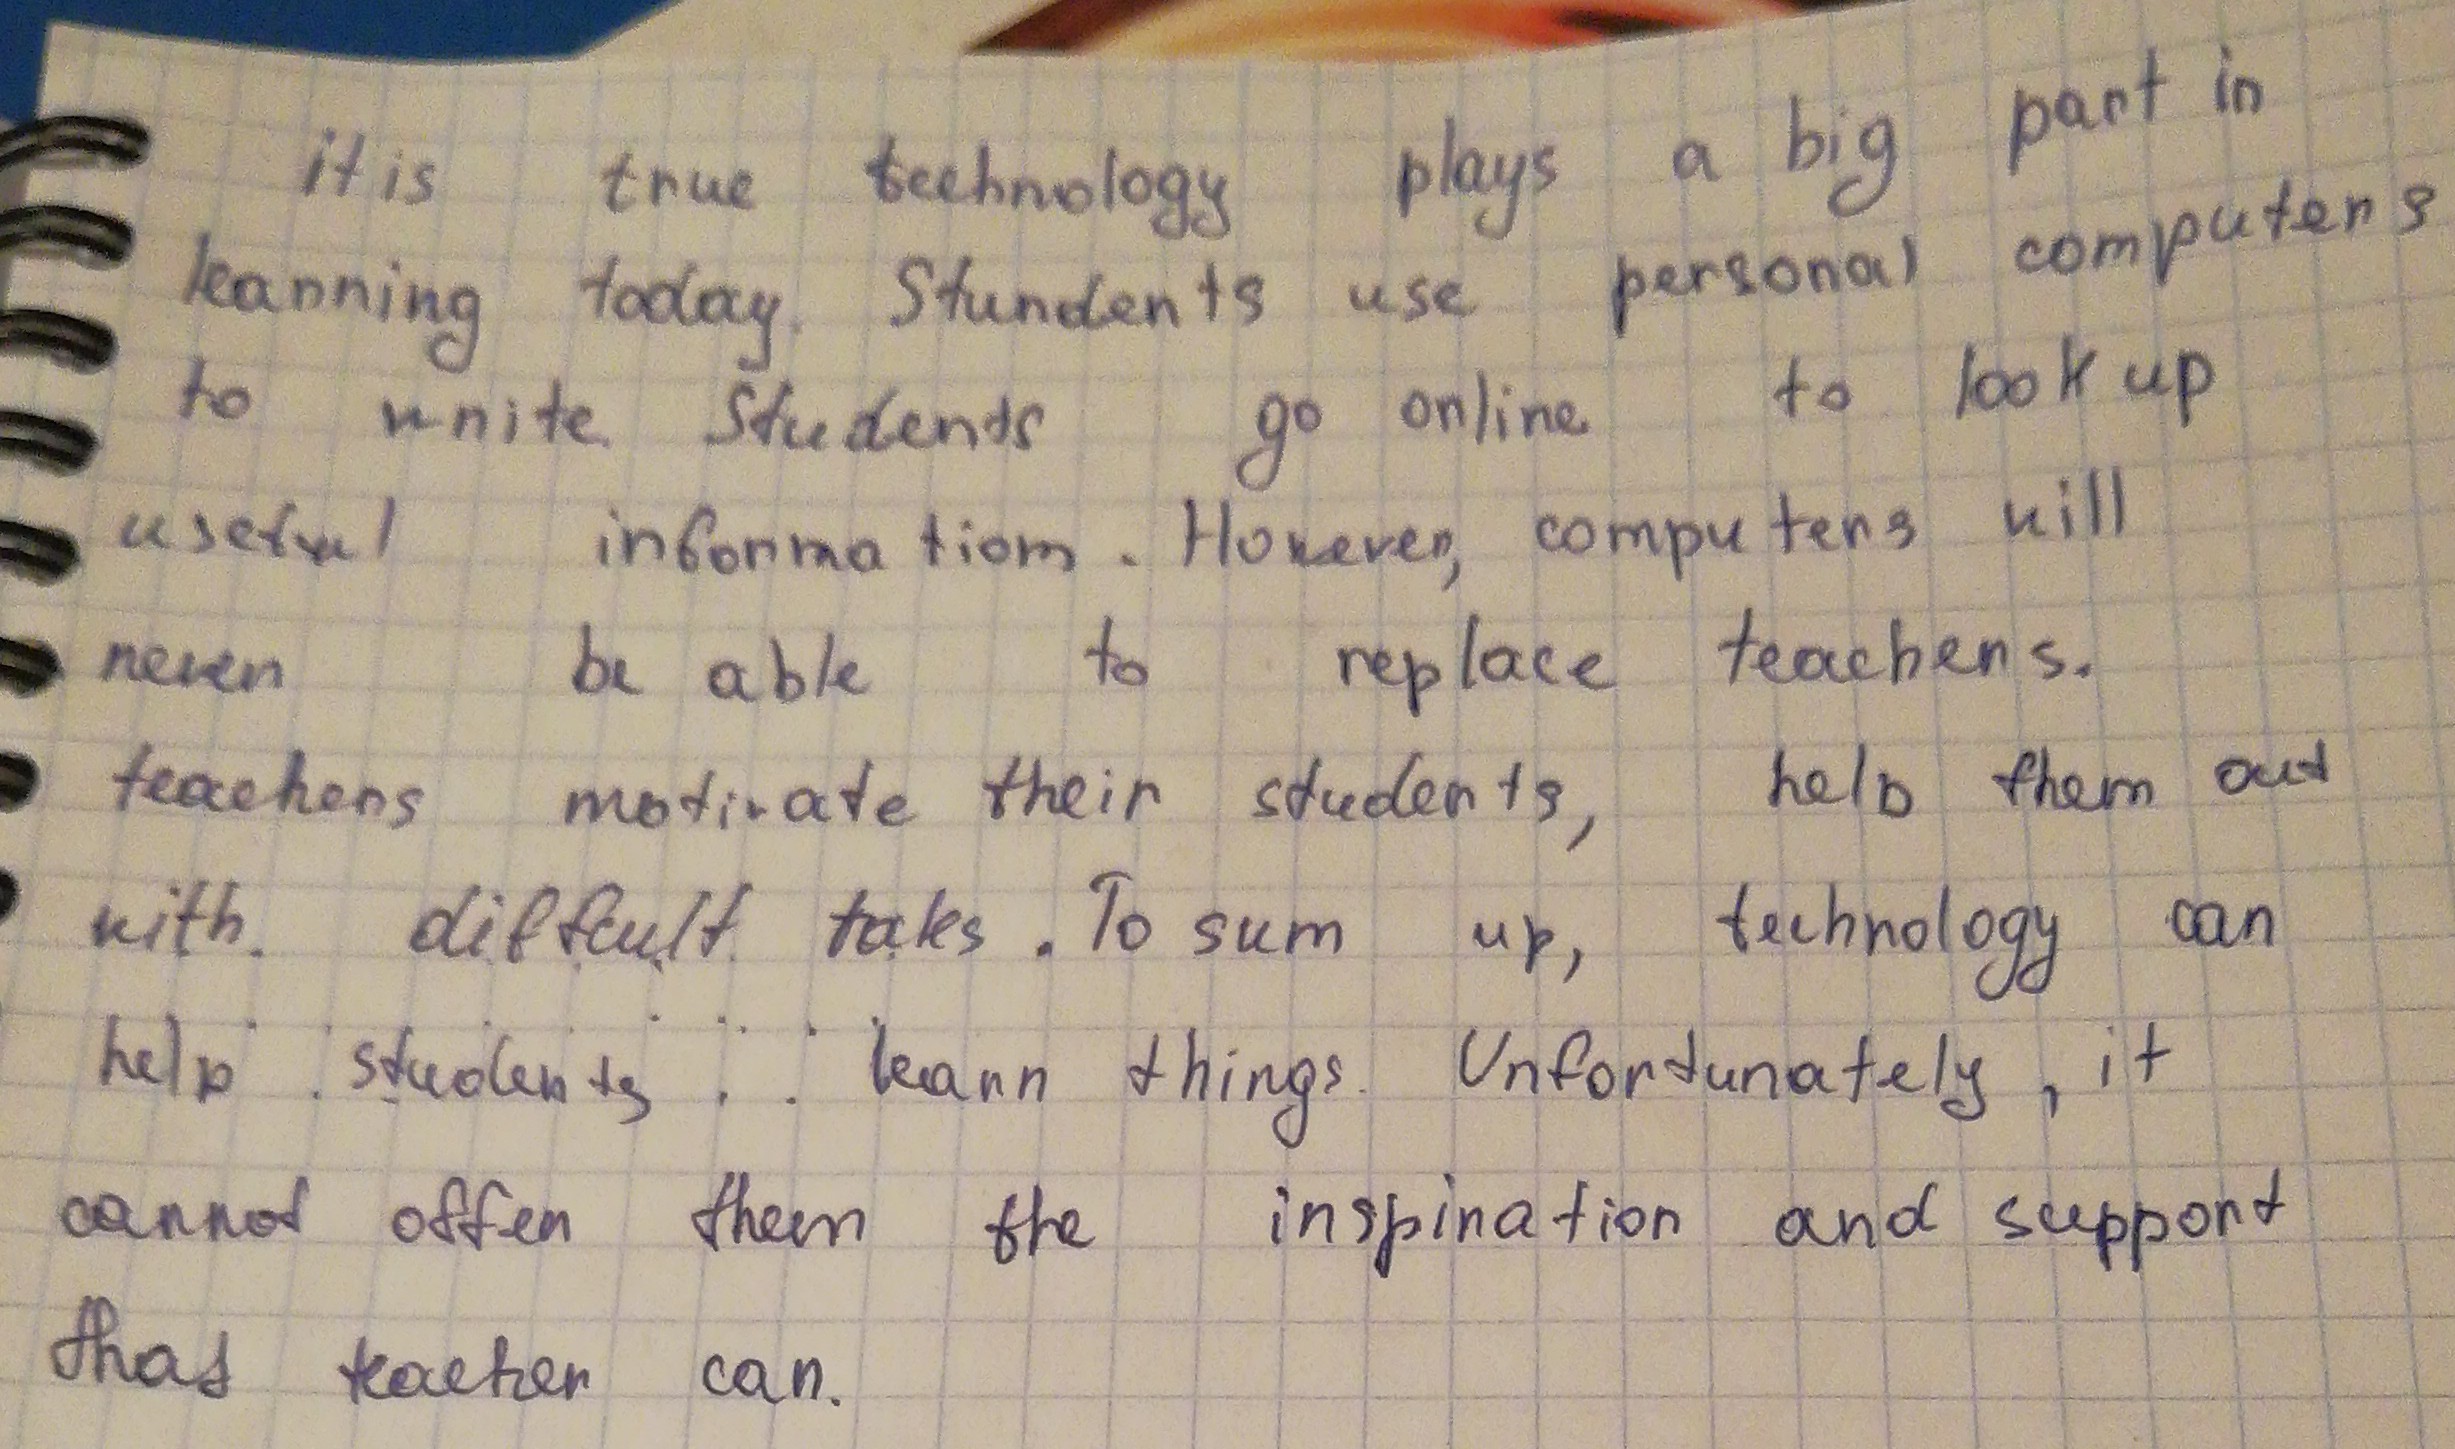 it is true technology plays a big part in
learning today. Stundents use personal computers
to write. Students go online to look up
useful information. However, computers will
never be able to replace teachers.
teachers motivate their students, help them out
with. difficult taks. To sum up, technology can
help students learn things. Unfortunately, it
cannot offer them the inspiration and support
that teacher can.